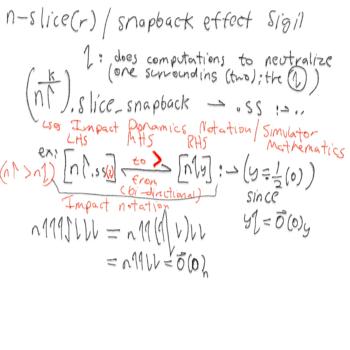 n-slice(r) / snapback effect sigil
⇂: does computations to neutralize
(one surrounding (two); the ⇂)
(k/n↾).slice_snapback → .ss :→..
use Impact Dynamics Notation/Simulator
Mathematics
LHS MHS RHS
ex: to >
(n↾>n⇂) [n↾.ss⇂] [n⇂y] :→ (y=½(0)
from
(bi-directional)
since
Impact notation
y⇂ = 0⃗(0)y
n↿↿↿⇂⇂⇂⇂ = n↿↿(↿⇂⇂)⇂⇂
= n↿↿⇂⇂ = 0⃗(0)n